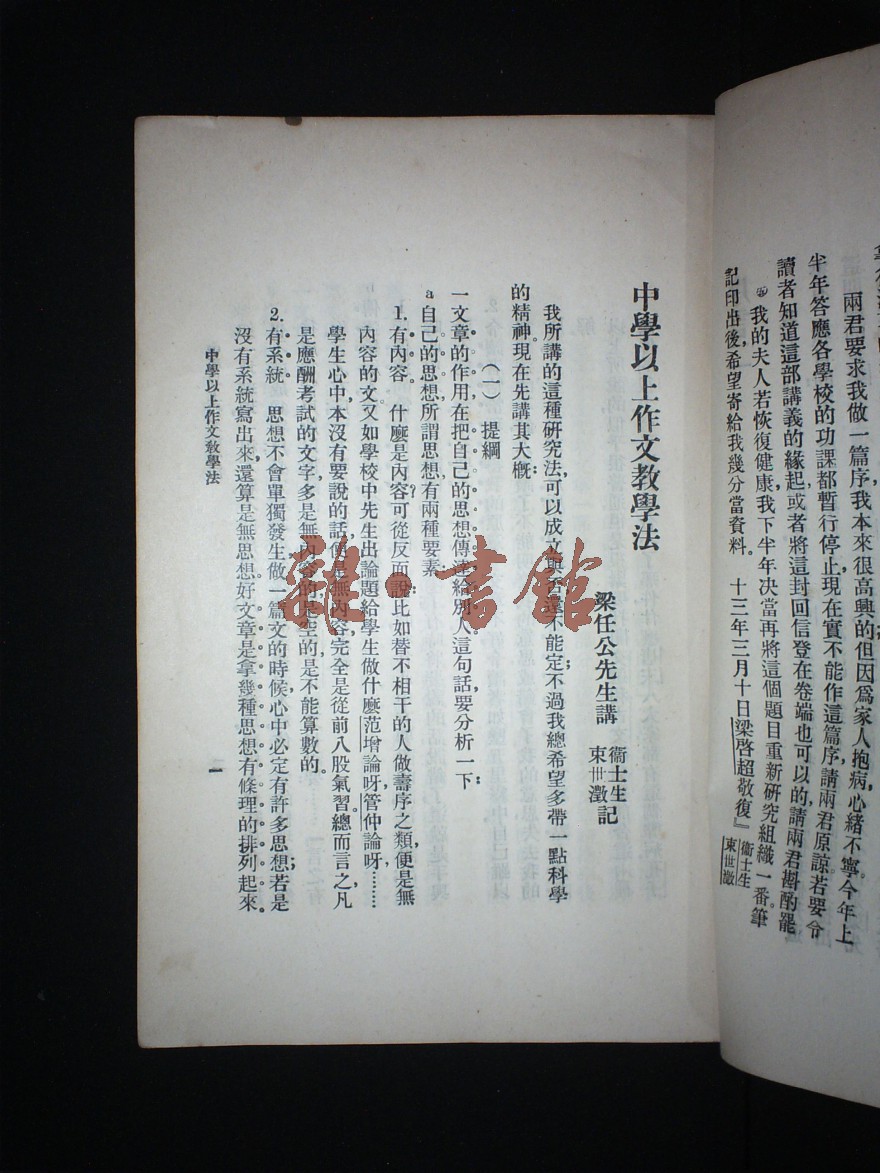 兩君要求我做一篇序，我本來很高興的但因爲家人抱病心緒不寧今年上
半年答應各學校的功課都暫行停止現在實不能作這篇序請兩君原諒若要令
讀者知道這部講義的緣起或者將這封回信登在卷端也可以的，請兩君斟酌罷
我的夫人若恢復健康我下半年決當再將這個題目重新研究組織一番筆
記印出後希望寄給我幾分當資料。 十三年三月十日梁啓超敬復』 衞士生 束世澂
中學以上作文教學法
梁任公先生講 衞士生 束世澂 記
我所講的這種研究法，可以成立與否還不能定；不過我總希望多帶一點科學
的精神。現在先講其大概：
（一） 提綱
一文章的作用在把自己的思想傳達給別人這句話要分析一下：
a自己的思想所謂思想有兩種要素
1. 有內容 什麼是內容？可從反面說比如替不相干的人做壽序之類，便是無
內容的文又如學校中先生出論題給學生做什麼范增論呀，管仲論呀………
學生心中本沒有要說的話便是無內容完全是從前八股氣習。總而言之凡
是應酬考試的文字多是無內容的是空的是不能算數的。
2. 有系統 思想不會單獨發生做一篇文的時候心中必定有許多思想若是
沒有系統寫出來，還算是無思想。好文章是拿幾種思想有條理的排列起來。
中學以上作文教學法
一
雜·書館